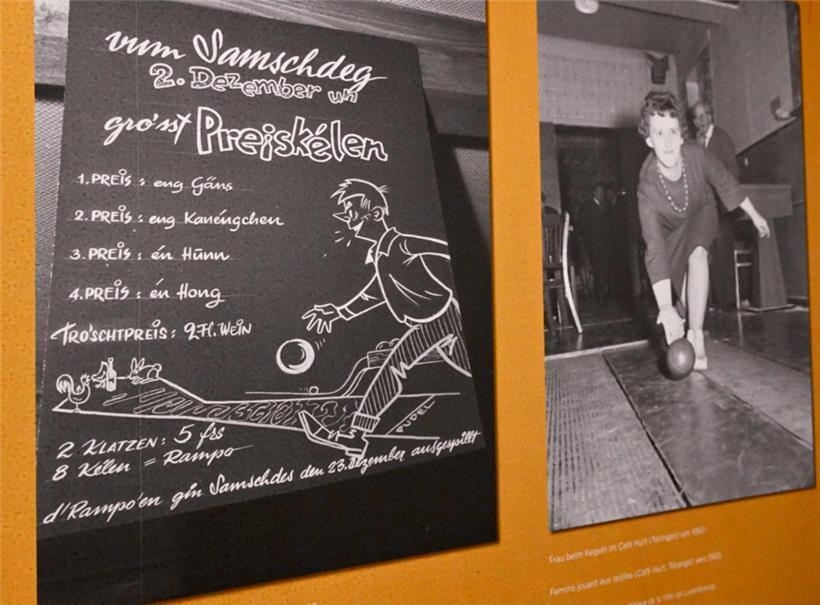 vum Samschdeg
2. Dezember un
gro'sst Preiskélen
1. PREIS : eng Gäns
2. PREIS : eng Kanéngchen
3. PREIS : én Hunn
4. PREIS : én Hong
TRO'SCHTPREIS : 2 Fl. WEIN
PUDEL
2 KLATZEN : 5 frs
8 Kélen = Rampo
d'Rampo'en gin Samschdes den 23. Dezember ausgespillt
Frau beim Kegeln im Café Hurt (Tétingen) um 1960
Femme jouant aux quilles (Café Hurt, Tétange) vers 1960
de la Ville de Luxembourg